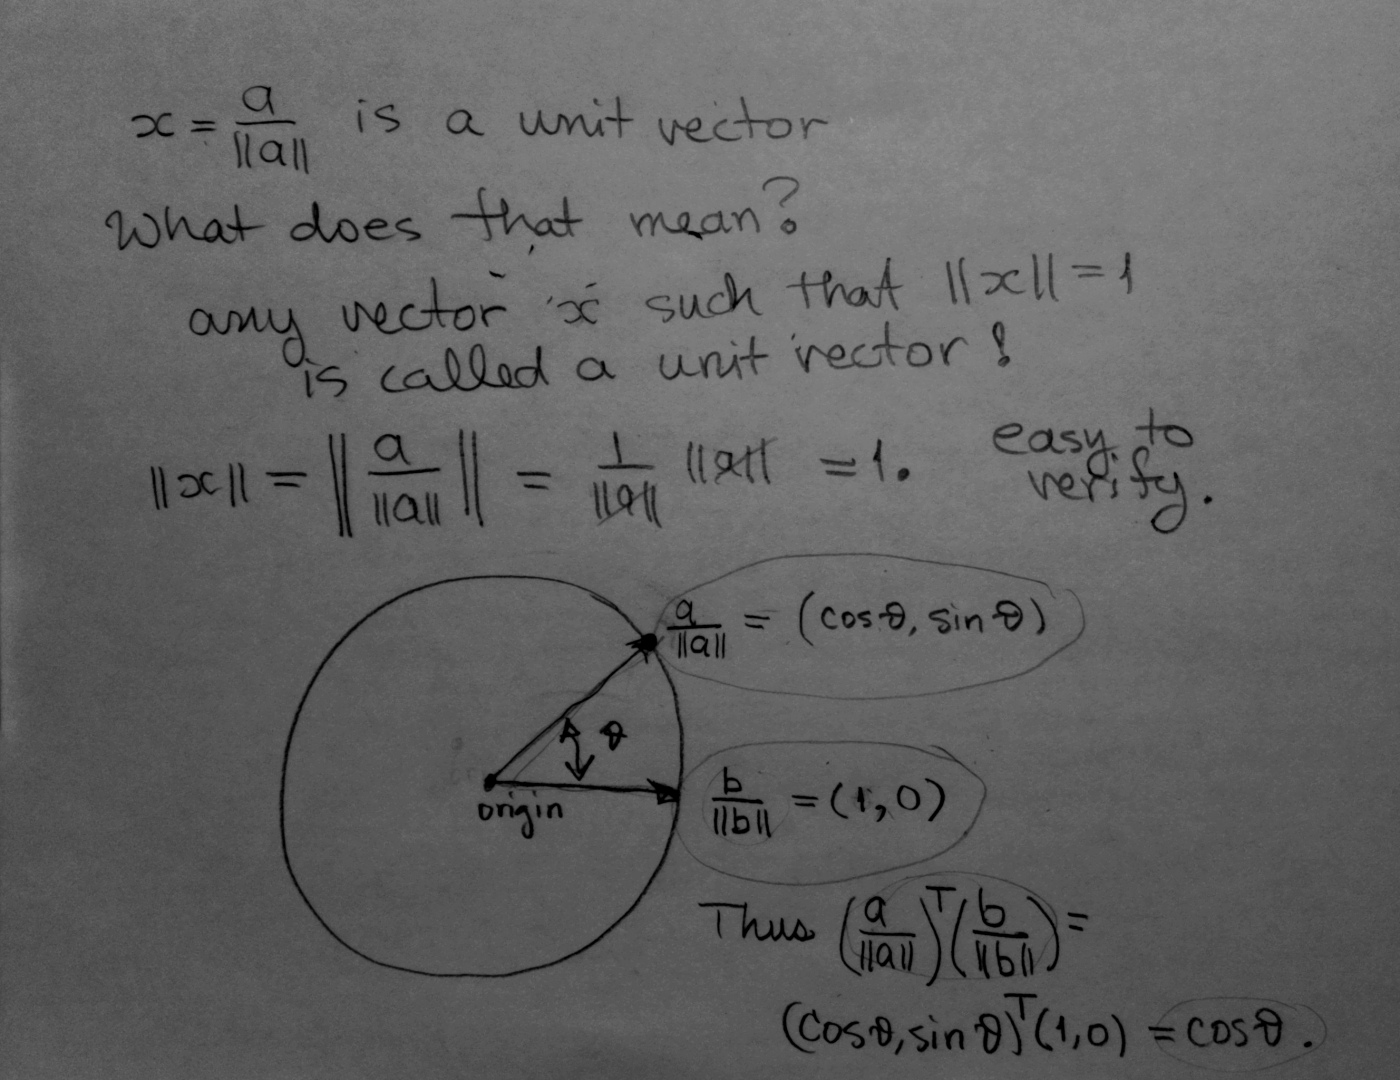 x = a/||a|| is a unit vector
What does that mean?
any vector x such that ||x|| = 1
is called a unit vector!
||x|| = || a/||a|| || = 1/||a|| ||a|| = 1. easy to
verify.
a/||a|| = (cos θ, sin θ)
θ
origin
b/||b|| = (1, 0)
Thus (a/||a||)ᵀ(b/||b||) =
(cos θ, sin θ)ᵀ(1, 0) = cos θ.